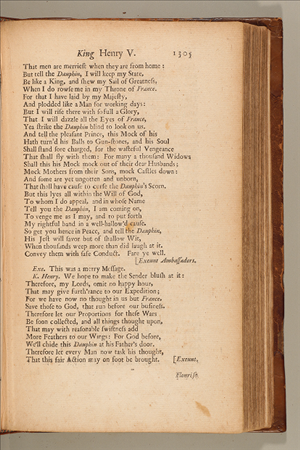 King Henry V. 1305
That men are merriest when they are from home:
But tell the Dauphin, I will keep my State,
Be like a King, and shew my Sail of Greatness,
When I do rowse me in my Throne of France.
For that I have laid by my Majesty,
And plodded like a Man for working days:
But I will rise there with so full a Glory,
That I will dazzle all the Eyes of France,
Yea strike the Dauphin blind to look on us.
And tell the pleasant Prince, this Mock of his
Hath turn'd his Balls to Gun-stones, and his Soul
Shall stand sore charged, for the wasteful Vengeance
That shall fly with them: For many a thousand Widows
Shall this his Mock mock out of their dear Husbands;
Mock Mothers from their Sons, mock Castles down:
And some are yet ungotten and unborn,
That shall have cause to curse the Dauphin's Scorn.
But this lyes all within the Will of God,
To whom I do appeal, and in whose Name
Tell you the Dauphin, I am coming on,
To venge me as I may, and to put forth
My rightful hand in a well-hallow'd cause.
So get you hence in Peace, and tell the Dauphin,
His Jest will savor but of shallow Wit,
When thousands weep more than did laugh at it.
Convey them with safe Conduct. Fare ye well.
[Exeunt Ambassadors.
Exe. This was a merry Message.
K. Henry. We hope to make the Sender blush at it:
Therefore, my Lords, omit no happy hour,
That may give furth'rance to our Expedition;
For we have now no thought in us but France,
Save those to God, that run before our business.
Therefore let our Proportions for those Wars
Be soon collected, and all things thought upon,
That may with reasonable swiftness add
More Feathers to our Wings: For God before,
We'll chide this Dauphin at his Father's door.
Therefore let every Man now task his thought,
That this fair Action may on foot be brought. [Exeunt.
Flourish.